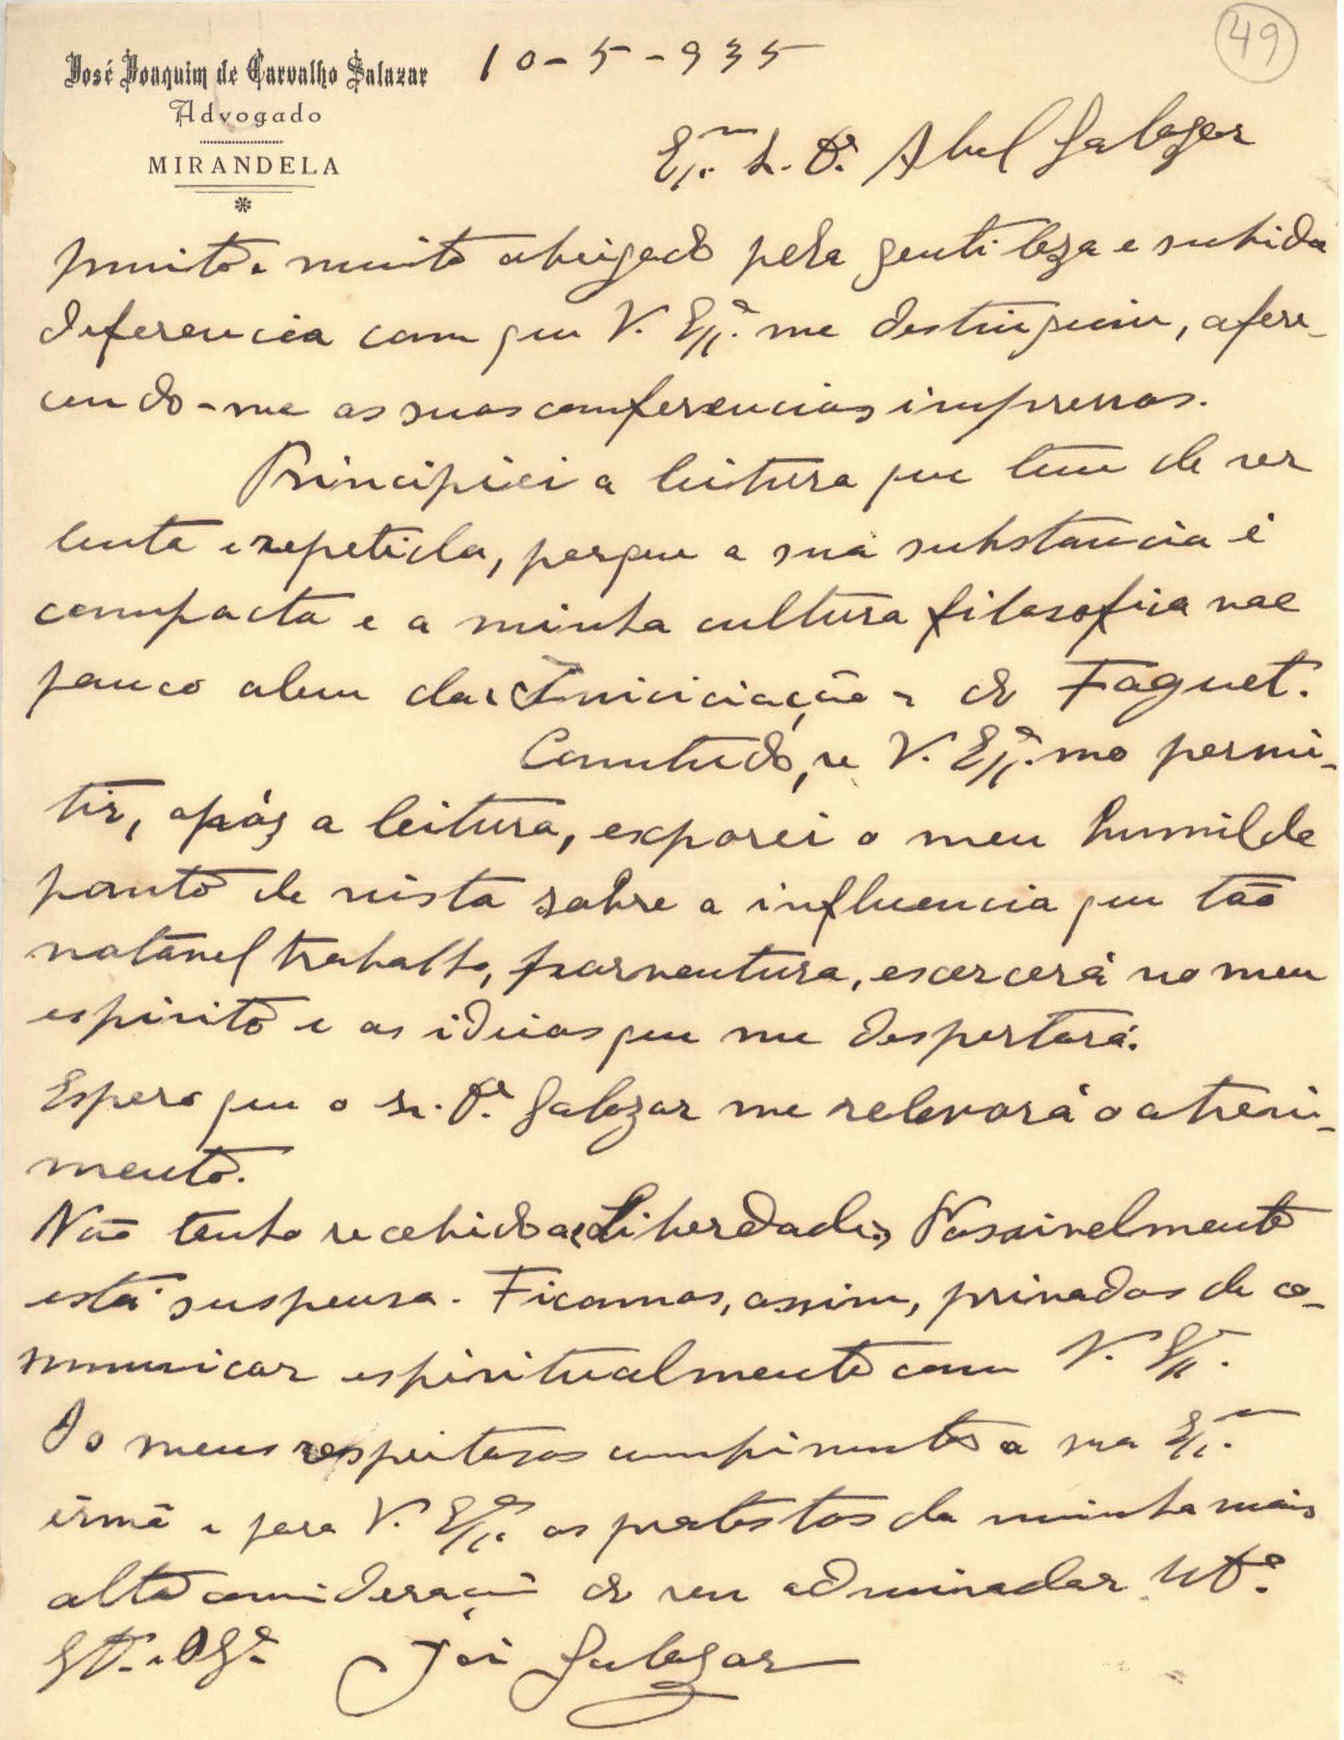 49
José Joaquim de Carvalho Salazar
Advogado
MIRANDELA
10-5-935
Exmo. Sr. Dr. Abel Salazar
Muito e muito obrigado pela gentileza e subida
deferencia com que V. Exª. me destinguiu, ofere-
cendo-me as suas conferencias impressas.
Principiei a leitura que tem de ser
lenta e repetida, porque a sua substancia é
compacta e a minha cultura filosofica vae
pouco alem das «Iniciciação» de Faguet.
Comtudo, se V. Exª. mo permi-
tir, após a leitura, exporei o meu humilde
ponto de vista sobre a influencia que tão
notavel trabalho, porventura, exercerá no meu
espirito e as ideias que me despertará.
Espero que o Sr. Dr. Salazar me relevará o atrevi-
mento.
Não tenho recebido a «Liberdade». Possivelmente
está suspensa. Ficamos, assim, privados de co-
mmunicar espiritualmente com V. Exª.
Os meus respeitosos cumprimentos a sua Exma.
irmã e para V. Exª. os protestos da minha mais
alta consideração do seu admirador Mtº.
Attº. e Obgº. José Salazar